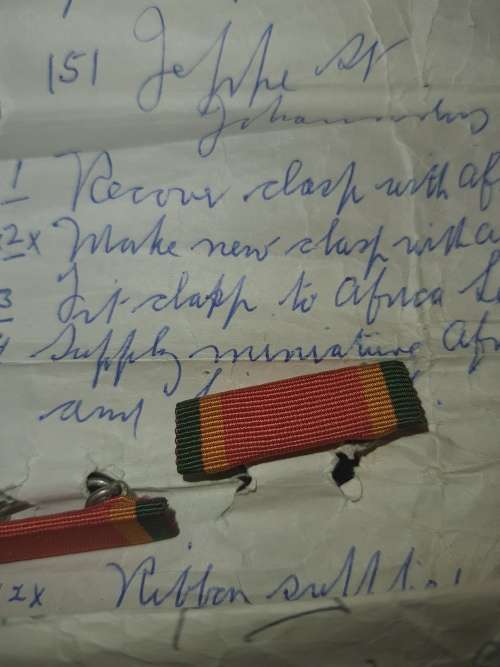 151 Jeppe St
Johannesburg
1 Recover clasp with Af
2x Make new clasp with a
3 Fit clasp to Africa
Supply miniature Afr
and
2x Ribbon